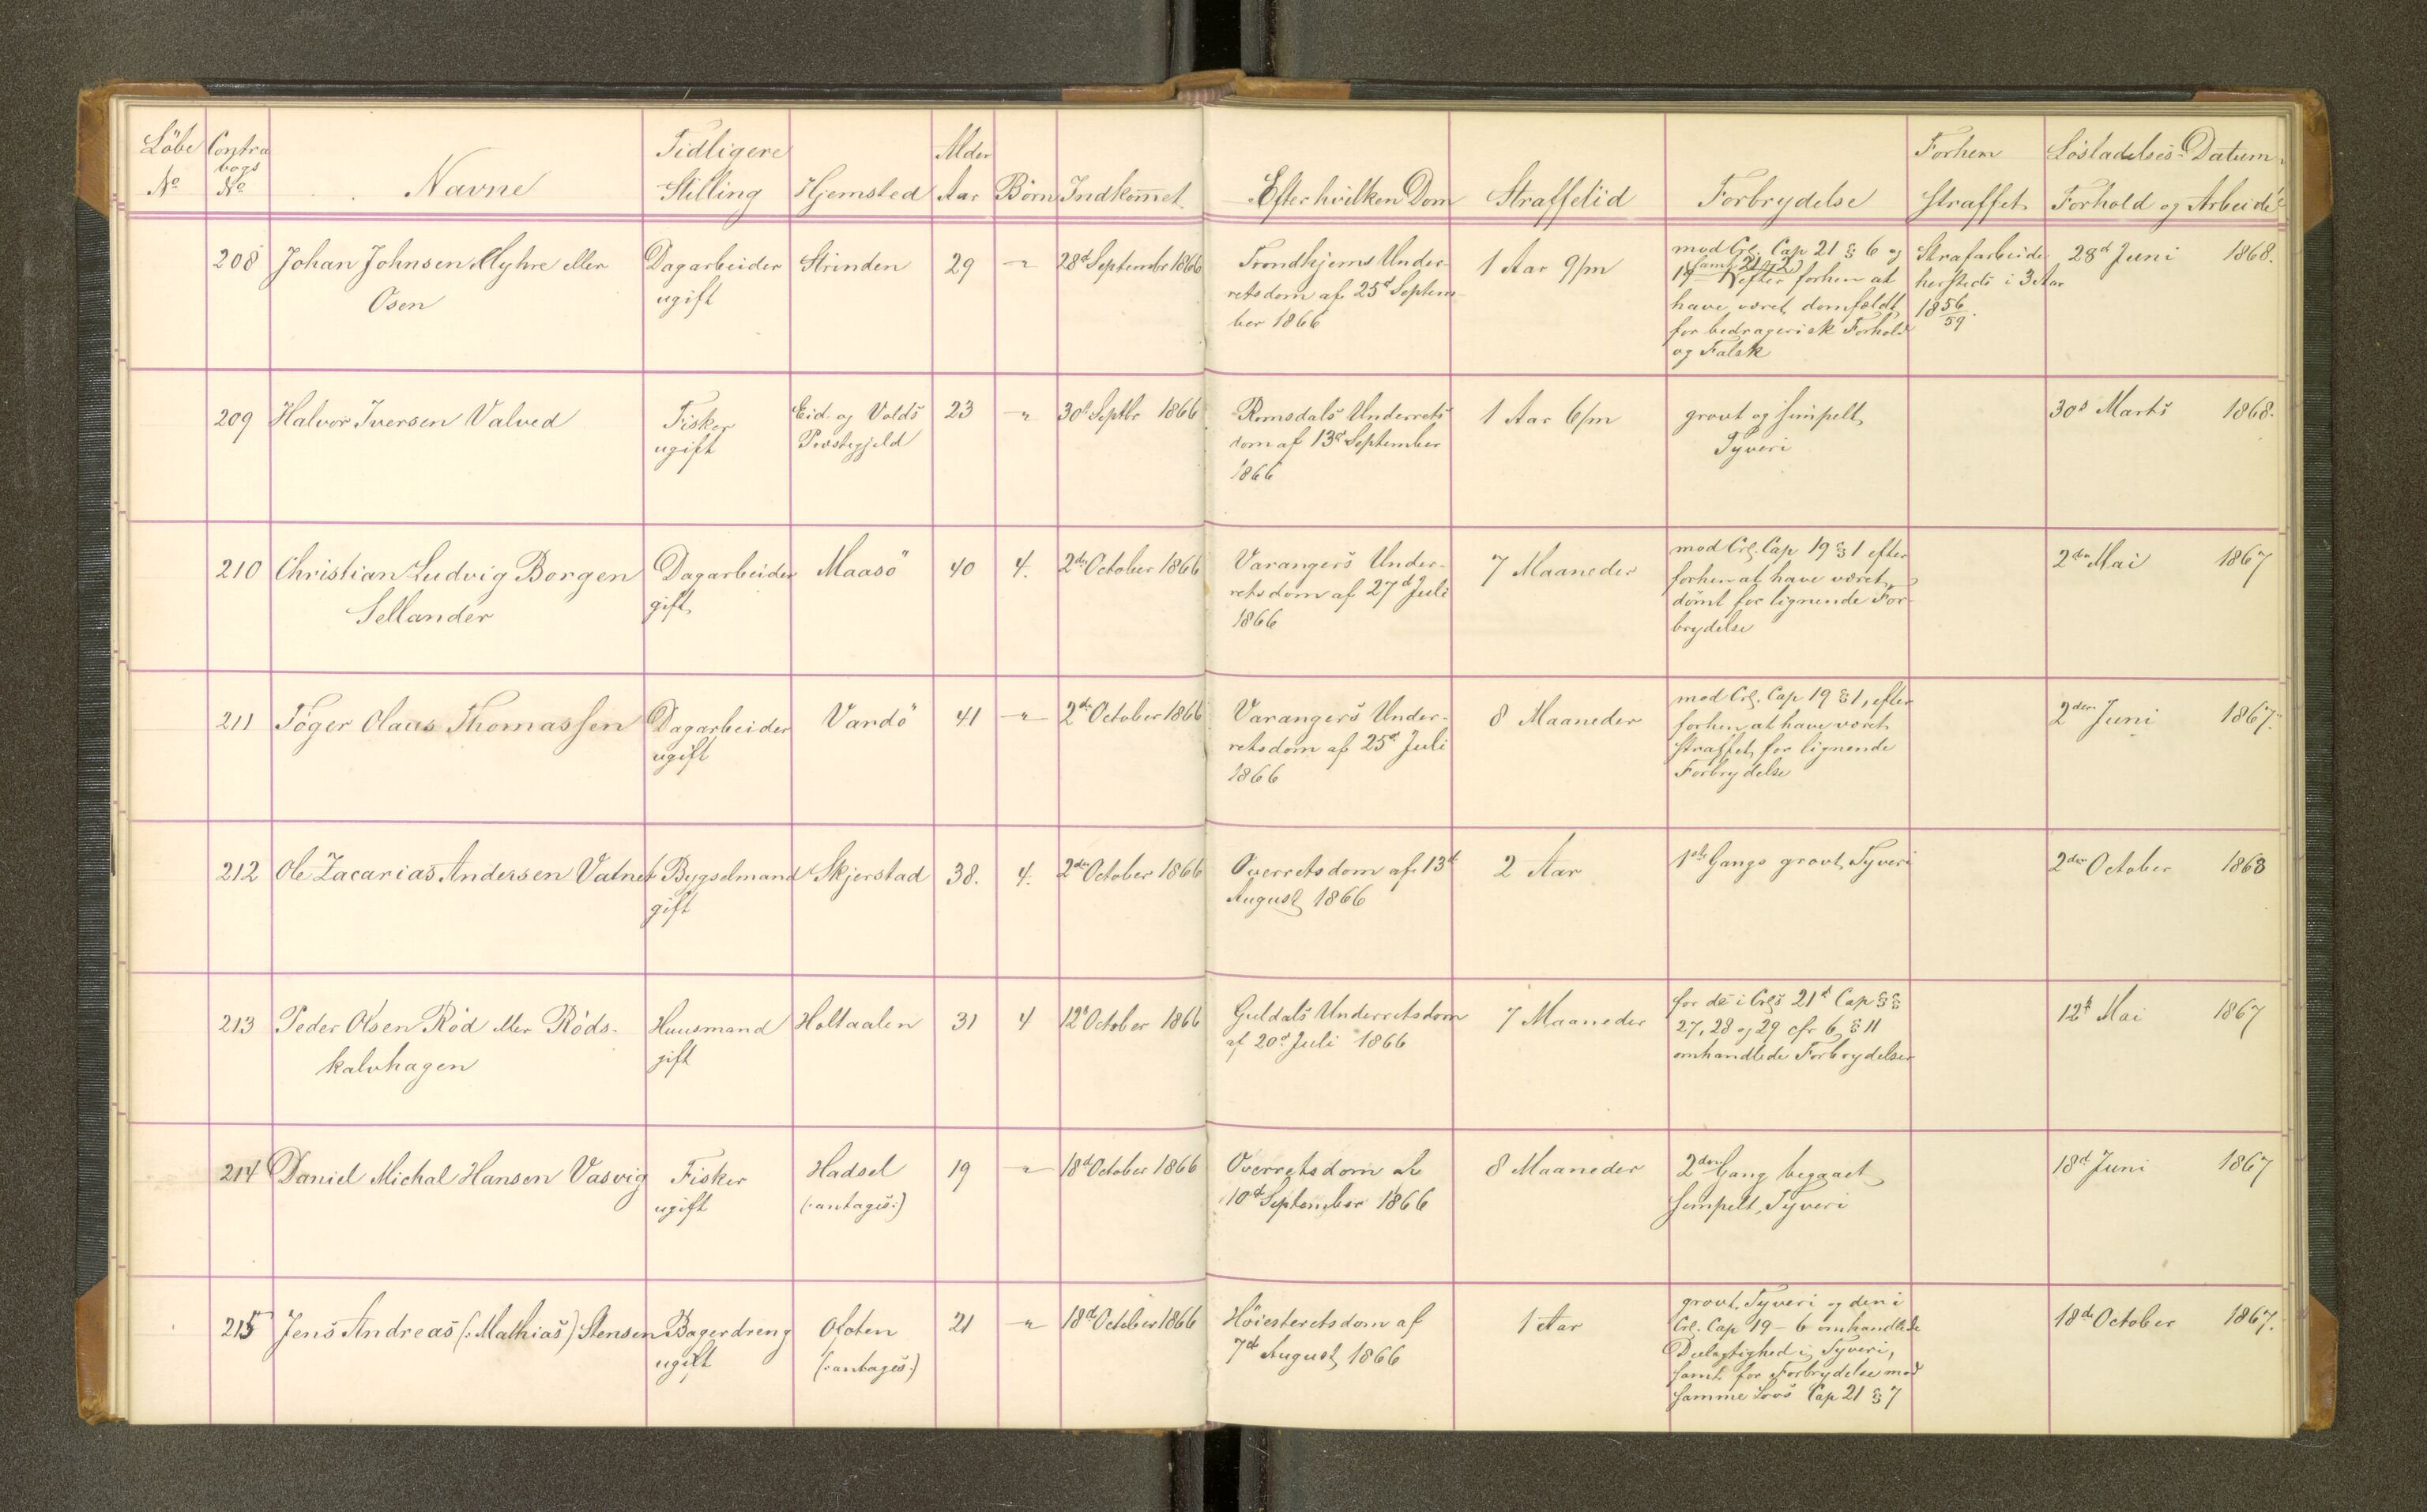 Löbe
No
Contra
bogs
No
Navne
Tidligere
Stilling
Hjemsted
Alder
Aar
Börn
Indkom̅et
Efter hvilken Dom
Straffetid
Forbrydelse
Forhen
straffet
Lösladelses-Datum.
Forhold og Arbeide
208
Johan Johnsen Myhre eller
Osen
Dagarbeider
ugift
Strinden
29
"
28d Septembr 1866
Trondhjems Under-
retsdom af 25d Septem-
ber 1866
1 Aar 9/m
mod Crl. Cap 21 § 6 og
samt 21 § 2
14 efter forhen at
have været domfældt
for bedragerisk Forhold
og Falsk
Strafarbeide
hersteds i 3 Aar
1856/59.
28d Juni 1868.
209
Halvor Iversen Valved
Fisker
ugift
Eid og Volds
Præstegjeld
23
"
30d Septbr 1866
Romsdals Underrets
dom af 13d September
1866
1 Aar 6/m
grovt og simpelt
Tyveri
30d Marts 1868.
210
Christian Ludvig Borgen
Sellander
Dagarbeider
gift
Maasö
40
4.
2den October 1866
Varangers Under-
retsdom af 27d Juli
1866
7 Maaneder
mod Crl. Cap 19 § 1 efter
forhen at have været
dömt for lignende For-
brydelse
2den Mai 1867
211
Töger Olaus Thomassen
Dagarbeider
ugift
Vardö
41
"
2den October 1866
Varangers Under-
retsdom af 25d Juli
1866
8 Maaneder
mod Crl. Cap 19 § 1, efter
forhen at have været
straffet for lignende
Forbrydelse
2den Juni 1867.
212
Ole Zacarias Andersen Vatnet
Bygselmand
gift
Skjerstad
38.
4.
2den October 1866
Overretsdom af 13d
August 1866
2 Aar
1ste Gangs grovt Tyveri
2den October 1868
213
Peder Olsen Röd eller Röds-
kalvhagen
Huusmand
gift
Holtaalen
31
4
12t October 1866
Guldals Underretsdom
af 20d Juli 1866
7 Maaneder
for de i Crls 21d Cap §§
27, 28 og 29 cfr 6 § 11
omhandlede Forbrydelser
12t Mai 1867
214
Daniel Michal Hansen Vasvig
Fisker
ugift
Hadsel
(:antages:)
19
"
18d October 1866
Overretsdom af
10d September 1866
8 Maaneder
2den Gang begaaet
simpelt Tyveri
18d Juni 1867
215
Jens Andreas (:Mathias) Stensen
Bagerdreng
ugift
Ofoten
(:antages:)
21
"
18d October 1866
Höiesteretsdom af
7de August 1866
1 Aar
grovt Tyveri og den i
Crl. Cap 19 - 6 omhandlede
Deelagtighed i Tyveri,
samt for Forbrydelse mod
samme Lovs Cap 21 § 7
18d October 1867.